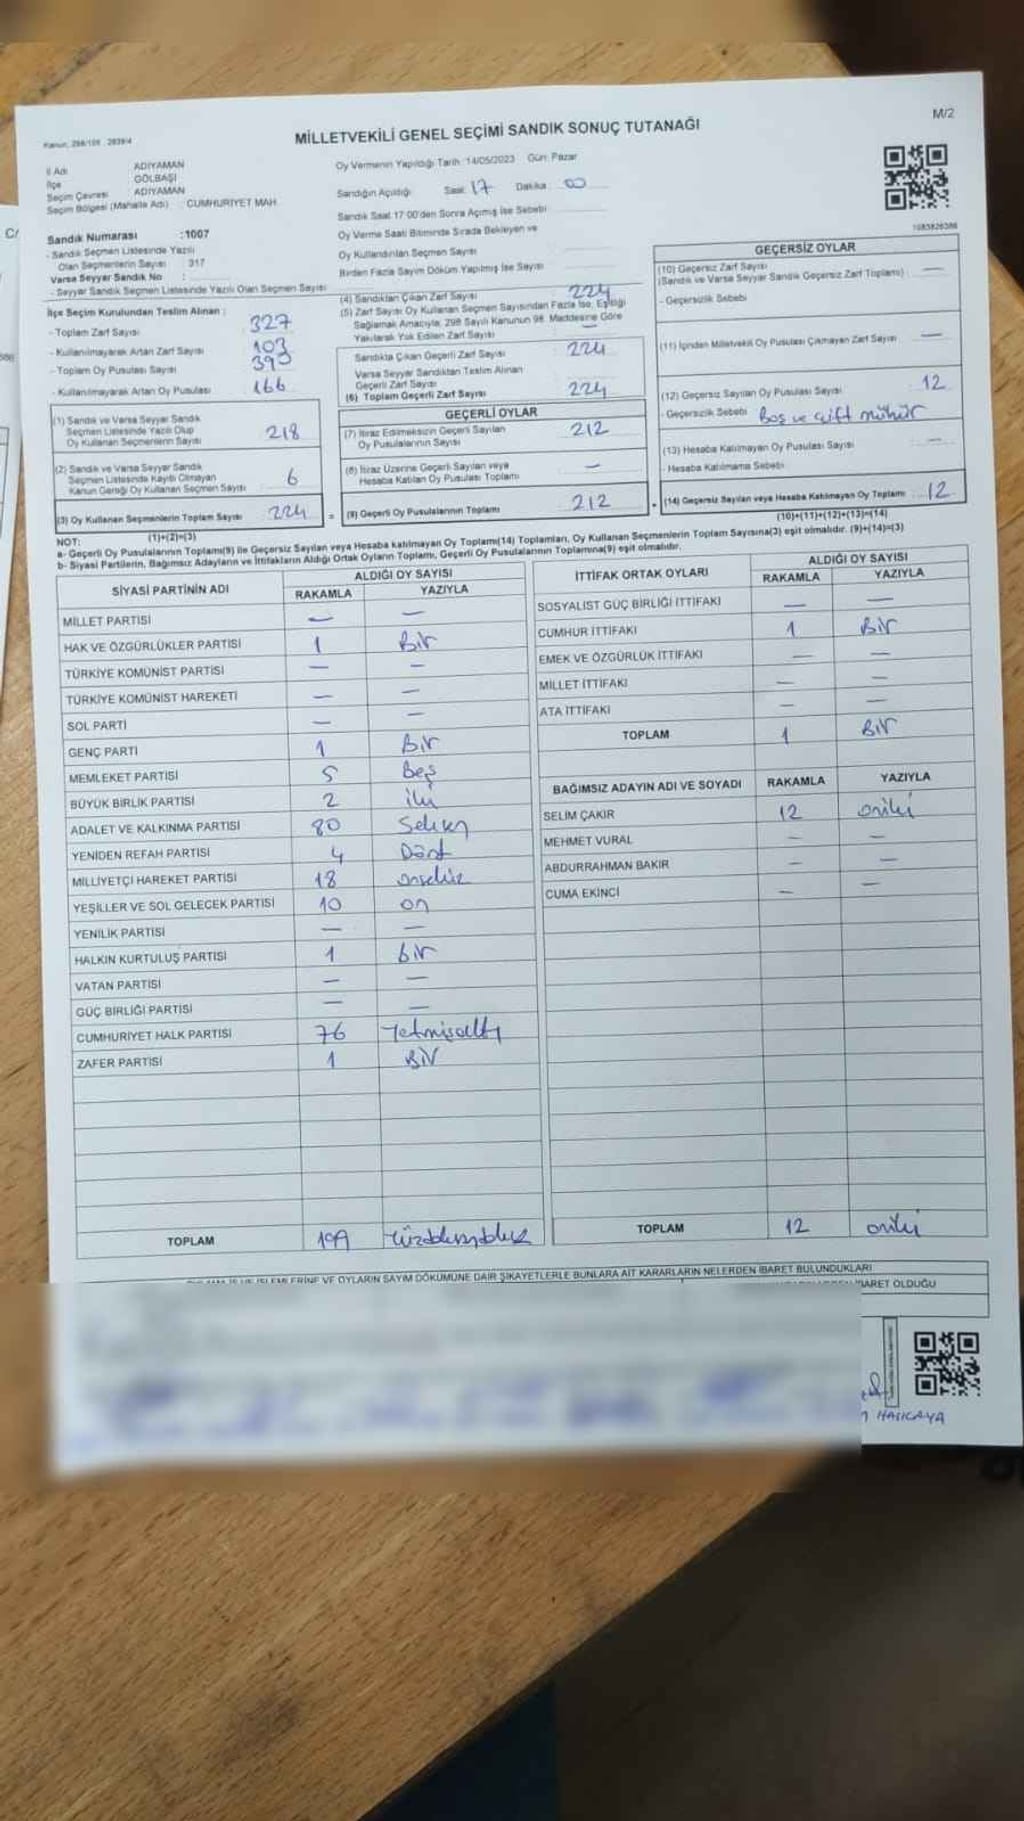 M/2
MİLLETVEKİLİ GENEL SEÇİMİ SANDIK SONUÇ TUTANAĞI
İl Adı : ADIYAMAN
İlçe : GÖLBAŞI
Seçim Çevresi : ADIYAMAN
Seçim Bölgesi (Mahalle Adı) : CUMHURİYET MAH.
Oy Vermenin Yapıldığı Tarih :14/05/2023 Gün: Pazar
Sandığın Açıldığı Saat 17 Dakika 00
Sandık Saat 17:00'den Sonra Açılmış İse Sebebi
Oy Verme Saati Bitiminde Sırada Bekleyen ve
Oy Kullandırılan Seçmen Sayısı
Birden Fazla Sayım Döküm Yapılmış İse Sayısı
1083826386
Sandık Numarası :1007
- Sandık Seçmen Listesinde Yazılı
Olan Seçmenlerin Sayısı : 317
Varsa Seyyar Sandık No :
- Seyyar Sandık Seçmen Listesinde Yazılı Olan Seçmen Sayısı
İlçe Seçim Kurulundan Teslim Alınan :
- Toplam Zarf Sayısı 327
- Kullanılmayarak Artan Zarf Sayısı 103
- Toplam Oy Pusulası Sayısı 390
- Kullanılmayarak Artan Oy Pusulası 166
(1) Sandık ve Varsa Seyyar Sandık
Seçmen Listesinde Yazılı Olup
Oy Kullanan Seçmenlerin Sayısı 218
(2) Sandık ve Varsa Seyyar Sandık
Seçmen Listesinde Kayıtlı Olmayan
Kanun Gereği Oy Kullanan Seçmen Sayısı 6
(3) Oy Kullanan Seçmenlerin Toplam Sayısı 224
(1)+(2)=(3)
(4) Sandıktan Çıkan Zarf Sayısı 224
(5) Zarf Sayısı Oy Kullanan Seçmen Sayısından Fazla İse, Eşitliği
Sağlamak Amacıyla, 298 Sayılı Kanunun 98. Maddesine Göre
Yakılarak Yok Edilen Zarf Sayısı —
Sandıkta Çıkan Geçerli Zarf Sayısı 224
Varsa Seyyar Sandıktan Teslim Alınan
Geçerli Zarf Sayısı
(6) Toplam Geçerli Zarf Sayısı 224
GEÇERLİ OYLAR
(7) İtiraz Edilmeksizin Geçerli Sayılan
Oy Pusulalarının Sayısı 212
(8) İtiraz Üzerine Geçerli Sayılan veya
Hesaba Katılan Oy Pusulası Toplamı —
(9) Geçerli Oy Pusulalarının Toplamı 212
GEÇERSİZ OYLAR
(10) Geçersiz Zarf Sayısı
(Sandık ve Varsa Seyyar Sandık Geçersiz Zarf Toplamı) —
- Geçersizlik Sebebi
(11) İçinden Milletvekili Oy Pusulası Çıkmayan Zarf Sayısı —
(12) Geçersiz Sayılan Oy Pusulası Sayısı 12
- Geçersizlik Sebebi Boş ve çift mühür
(13) Hesaba Katılmayan Oy Pusulası Sayısı —
- Hesaba Katılmama Sebebi
(14) Geçersiz Sayılan veya Hesaba Katılmayan Oy Toplamı 12
(10)+(11)+(12)+(13)=(14)
NOT:
a- Geçerli Oy Pusulalarının Toplamı(9) ile Geçersiz Sayılan veya Hesaba katılmayan Oy Toplamı(14) Toplamları, Oy Kullanan Seçmenlerin Toplam Sayısına(3) eşit olmalıdır. (9)+(14)=(3)
b- Siyasi Partilerin, Bağımsız Adayların ve İttifakların Aldığı Ortak Oyların Toplamı, Geçerli Oy Pusulalarının Toplamına(9) eşit olmalıdır.
SİYASİ PARTİNİN ADI ALDIĞI OY SAYISI
RAKAMLA YAZIYLA
MİLLET PARTİSİ — —
HAK VE ÖZGÜRLÜKLER PARTİSİ 1 Bir
TÜRKİYE KOMÜNİST PARTİSİ — —
TÜRKİYE KOMÜNİST HAREKETİ — —
SOL PARTİ — —
GENÇ PARTİ 1 Bir
MEMLEKET PARTİSİ 5 Beş
BÜYÜK BİRLİK PARTİSİ 2 iki
ADALET VE KALKINMA PARTİSİ 80 Seksen
YENİDEN REFAH PARTİSİ 4 Dört
MİLLİYETÇİ HAREKET PARTİSİ 18 onsekiz
YEŞİLLER VE SOL GELECEK PARTİSİ 10 on
YENİLİK PARTİSİ — —
HALKIN KURTULUŞ PARTİSİ 1 bir
VATAN PARTİSİ — —
GÜÇ BİRLİĞİ PARTİSİ — —
CUMHURİYET HALK PARTİSİ 76 Yetmişaltı
ZAFER PARTİSİ 1 Bir
TOPLAM 199 Yüzdoksandokuz
İTTİFAK ORTAK OYLARI ALDIĞI OY SAYISI
RAKAMLA YAZIYLA
SOSYALİST GÜÇ BİRLİĞİ İTTİFAKI — —
CUMHUR İTTİFAKI 1 Bir
EMEK VE ÖZGÜRLÜK İTTİFAKI — —
MİLLET İTTİFAKI — —
ATA İTTİFAKI — —
TOPLAM 1 Bir
BAĞIMSIZ ADAYIN ADI VE SOYADI RAKAMLA YAZIYLA
SELİM ÇAKIR 12 oniki
MEHMET VURAL — —
ABDURRAHMAN BAKIR — —
CUMA EKİNCİ — —
TOPLAM 12 oniki
VE OYLARIN SAYIM DÖKÜMÜNE DAİR ŞİKAYETLERLE BUNLARA AİT KARARLARIN NELERDEN İBARET BULUNDUKLARI
İBARET OLDUĞU